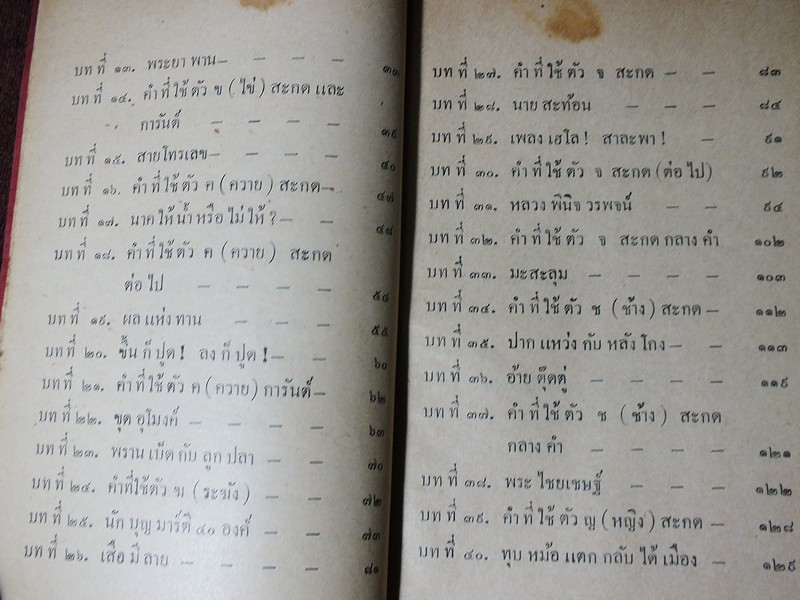 บทที่ ๑๓. พระยา พาน — — — — ๓๓
บทที่ ๑๔. คำที่ใช้ตัว ข (ไข่) สะกด และ
การันต์ — — — — ๓๙
บทที่ ๑๕. สายโทรเลข — — — — ๔๐
บทที่ ๑๖. คำที่ใช้ตัว ค (ควาย) สะกด — ๔๗
บทที่ ๑๗. นาค ให้ น้ำ หรือ ไม่ ให้ ? — — ๔๘
บทที่ ๑๘. คำที่ใช้ตัว ค (ควาย) สะกด
ต่อไป — — — — ๕๔
บทที่ ๑๙. ผล แห่ง ทาน — — — ๕๕
บทที่ ๒๐. ขึ้น ก็ ปูด ! ลง ก็ ปูด ! — — ๖๐
บทที่ ๒๑. คำที่ใช้ตัว ค (ควาย) การันต์ — ๖๒
บทที่ ๒๒. ขุด อุโมงค์ — — — — ๖๓
บทที่ ๒๓. พราน เบ็ด กับ ลูก ปลา — — ๗๐
บทที่ ๒๔. คำที่ใช้ตัว ฆ (ระฆัง) — — ๗๒
บทที่ ๒๕. นัก บุญ มาร์ติ ๔๐ องค์ — — ๗๓
บทที่ ๒๖. เสือ มี ลาย — — — — ๘๑
บทที่ ๒๗. คำที่ใช้ตัว จ สะกด — — ๘๓
บทที่ ๒๘. นาย สะท้อน — — — ๘๔
บทที่ ๒๙. เพลง เฮโล ! สาละพา ! — ๙๑
บทที่ ๓๐. คำที่ใช้ตัว จ สะกด (ต่อไป) ๙๒
บทที่ ๓๑. หลวง พินิจ วรพจน์ — — ๙๔
บทที่ ๓๒. คำที่ใช้ตัว จ สะกด กลาง คำ ๑๐๒
บทที่ ๓๓. มะสะลุม — — — — ๑๐๓
บทที่ ๓๔. คำที่ใช้ตัว ช (ช้าง) สะกด — ๑๑๒
บทที่ ๓๕. ปาก แหว่ง กับ หลัง โกง — — ๑๑๓
บทที่ ๓๖. อ้าย ตุ๊ดตู่ — — — — ๑๑๙
บทที่ ๓๗. คำที่ใช้ตัว ช (ช้าง) สะกด
กลาง คำ — — — — ๑๒๑
บทที่ ๓๘. พระ ไชยเชษฐ์ — — — ๑๒๒
บทที่ ๓๙. คำที่ใช้ตัว ญ (หญิง) สะกด — ๑๒๘
บทที่ ๔๐. ทุบ หม้อ แตก กลับ ได้ เมือง — ๑๒๙